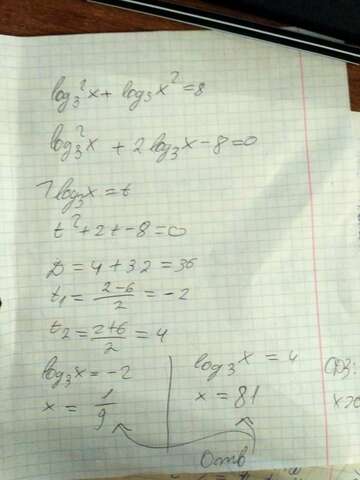 log₃²x + log₃x² = 8
log₃²x + 2 log₃x - 8 = 0
log₃x = t
t² + 2t - 8 = 0
D = 4 + 32 = 36
t₁ = (2-6)/2 = -2
t₂ = (2+6)/2 = 4
log₃x = -2
x = 1/9
log₃x = 4
x = 81
ОДЗ:
x>0
Отв